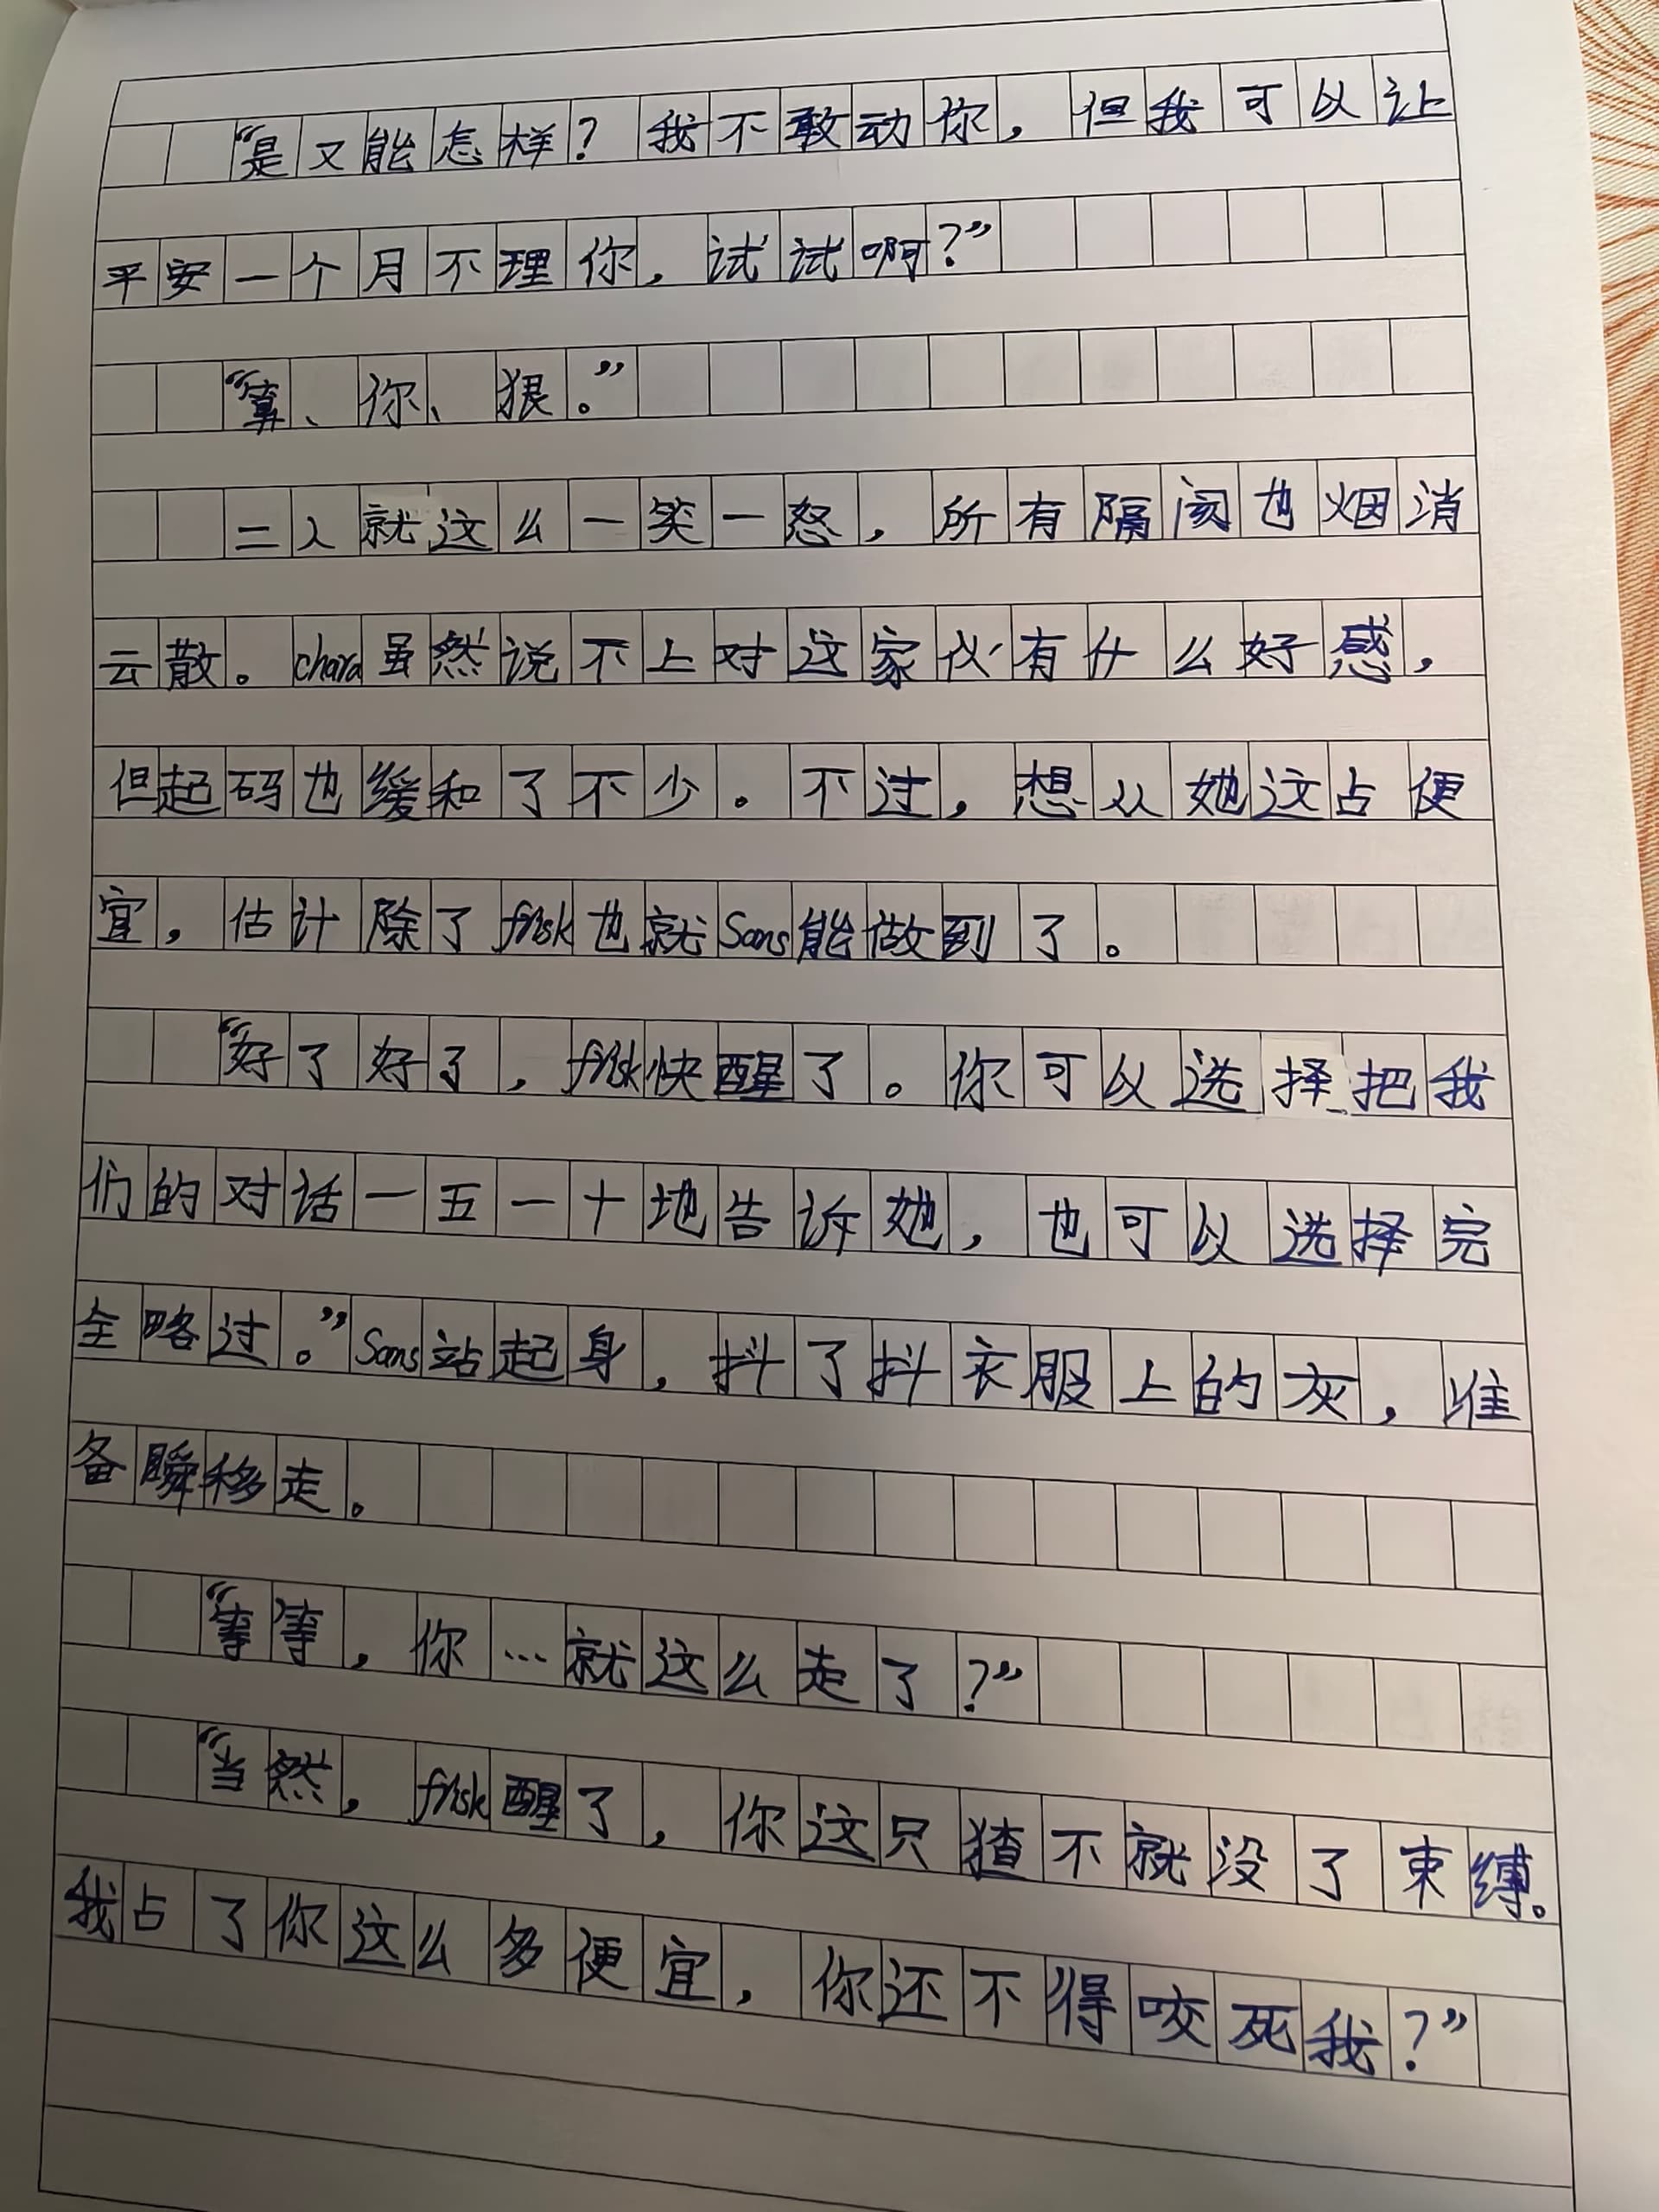 “是又能怎样？我不敢动你，但我可以让
平安一个月不理你，试试啊？”
“算、你、狠。”
二人就这么一笑一怒，所有隔阂也烟消
云散。chara虽然说不上对这家伙有什么好感，
但起码也缓和了不少。不过，想从她这占便
宜，估计除了frisk也就Sans能做到了。
“好了好了，frisk快醒了。你可以选择把我
们的对话一五一十地告诉她，也可以选择完
全略过。”Sans站起身，抖了抖衣服上的灰，准
备瞬移走。
“等等，你…就这么走了？”
“当然，frisk醒了，你这只猹不就没了束缚。
我占了你这么多便宜，你还不得咬死我？”